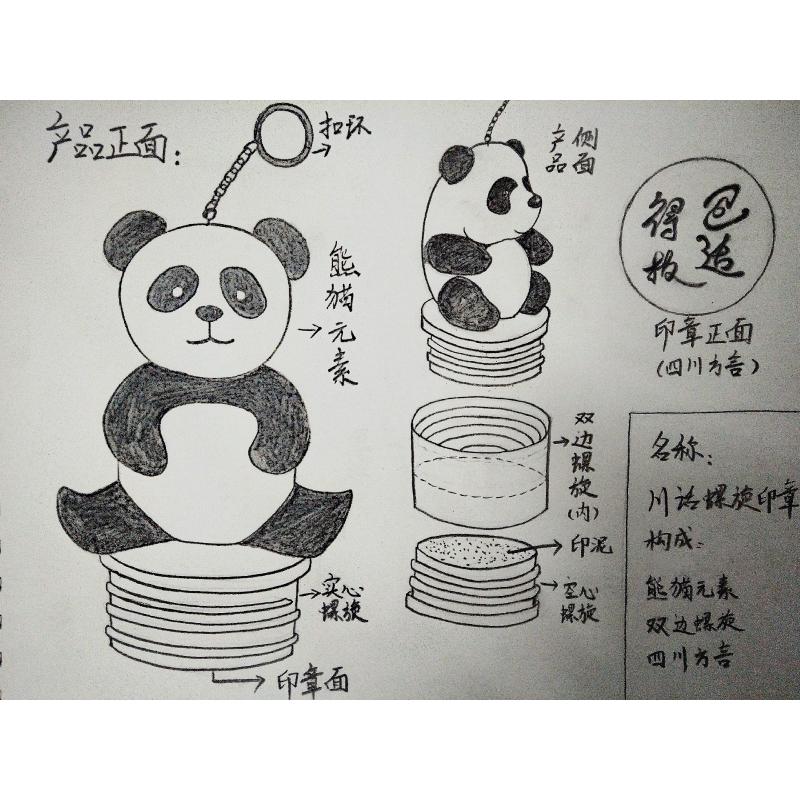 产品正面：
扣环
熊猫元素
实心
螺旋
印章面
产品
侧面
双边螺旋(内)
印泥
空心
螺旋
巴适
得板
印章正面
(四川方言)
名称：
川话螺旋印章
构成：
熊猫元素
双边螺旋
四川方言